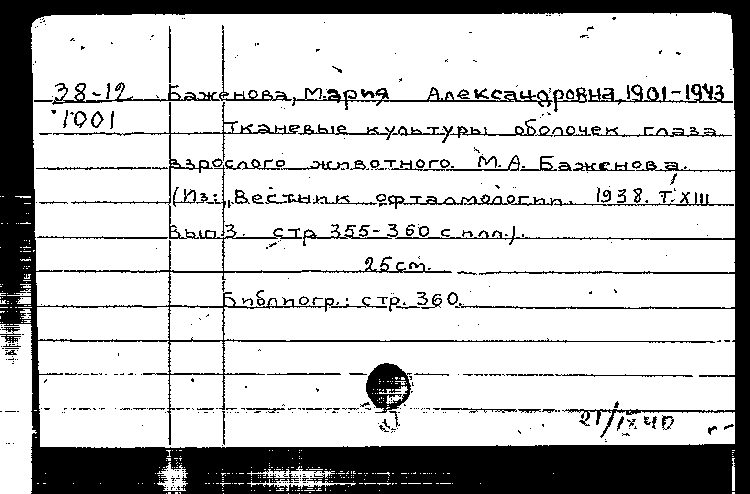 38-12 Баженова, Мария Александровна, 1901-1943
1001
Тканевые культуры оболочек глаза
взрослого животного. М.А. Баженова.
(Из: „Вестник офталмологии. 1938. Т. XIII
вып 3. стр 355-360 с илл.).
25 cm.
Библиогр.: стр. 360.
21/IX 40